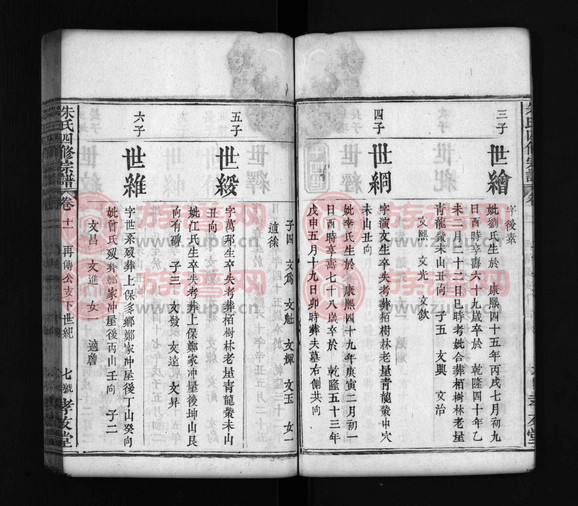 三子
世繪
字後素
妣劉氏生於 康熙四十五年丙戌七月初九
日酉時享壽六十九歲卒於 乾隆四十年乙
未二月二十二日巳時考妣合葬栢樹林老塋
青龍縈未山丑向 子五 文興 文治
文經 文光 文欽
四子
世綱
字濱文生卒失考葬栢樹林老塋青龍縈申穴
未山丑向
妣李氏生於 康熙四十九年庚寅二月初一
日酉時享壽七十八歲卒於 乾隆五十三年
戊申五月十九日卯時葬夫墓右側共向
子四 文爲 文魁 文燦 文玉 女一
適徐
五子
世綬
字萬邦生卒失考葬栢樹林老塋青龍縈未山
丑向
妣江氏生卒失考葬上保鄭家冲屋後坤山艮
向有碑 子三 文發 文達 文昇
六子
世維
字世系歿葬上保鄉鄭家冲屋後丁山癸向
妣曾氏歿葬鄭家冲屋後丙山壬向 子二
文昌 文進 女一 適詹
朱氏四修宗譜
卷十一
再傳公支下世紀
七號
孝友堂
族普网
zupu.cn